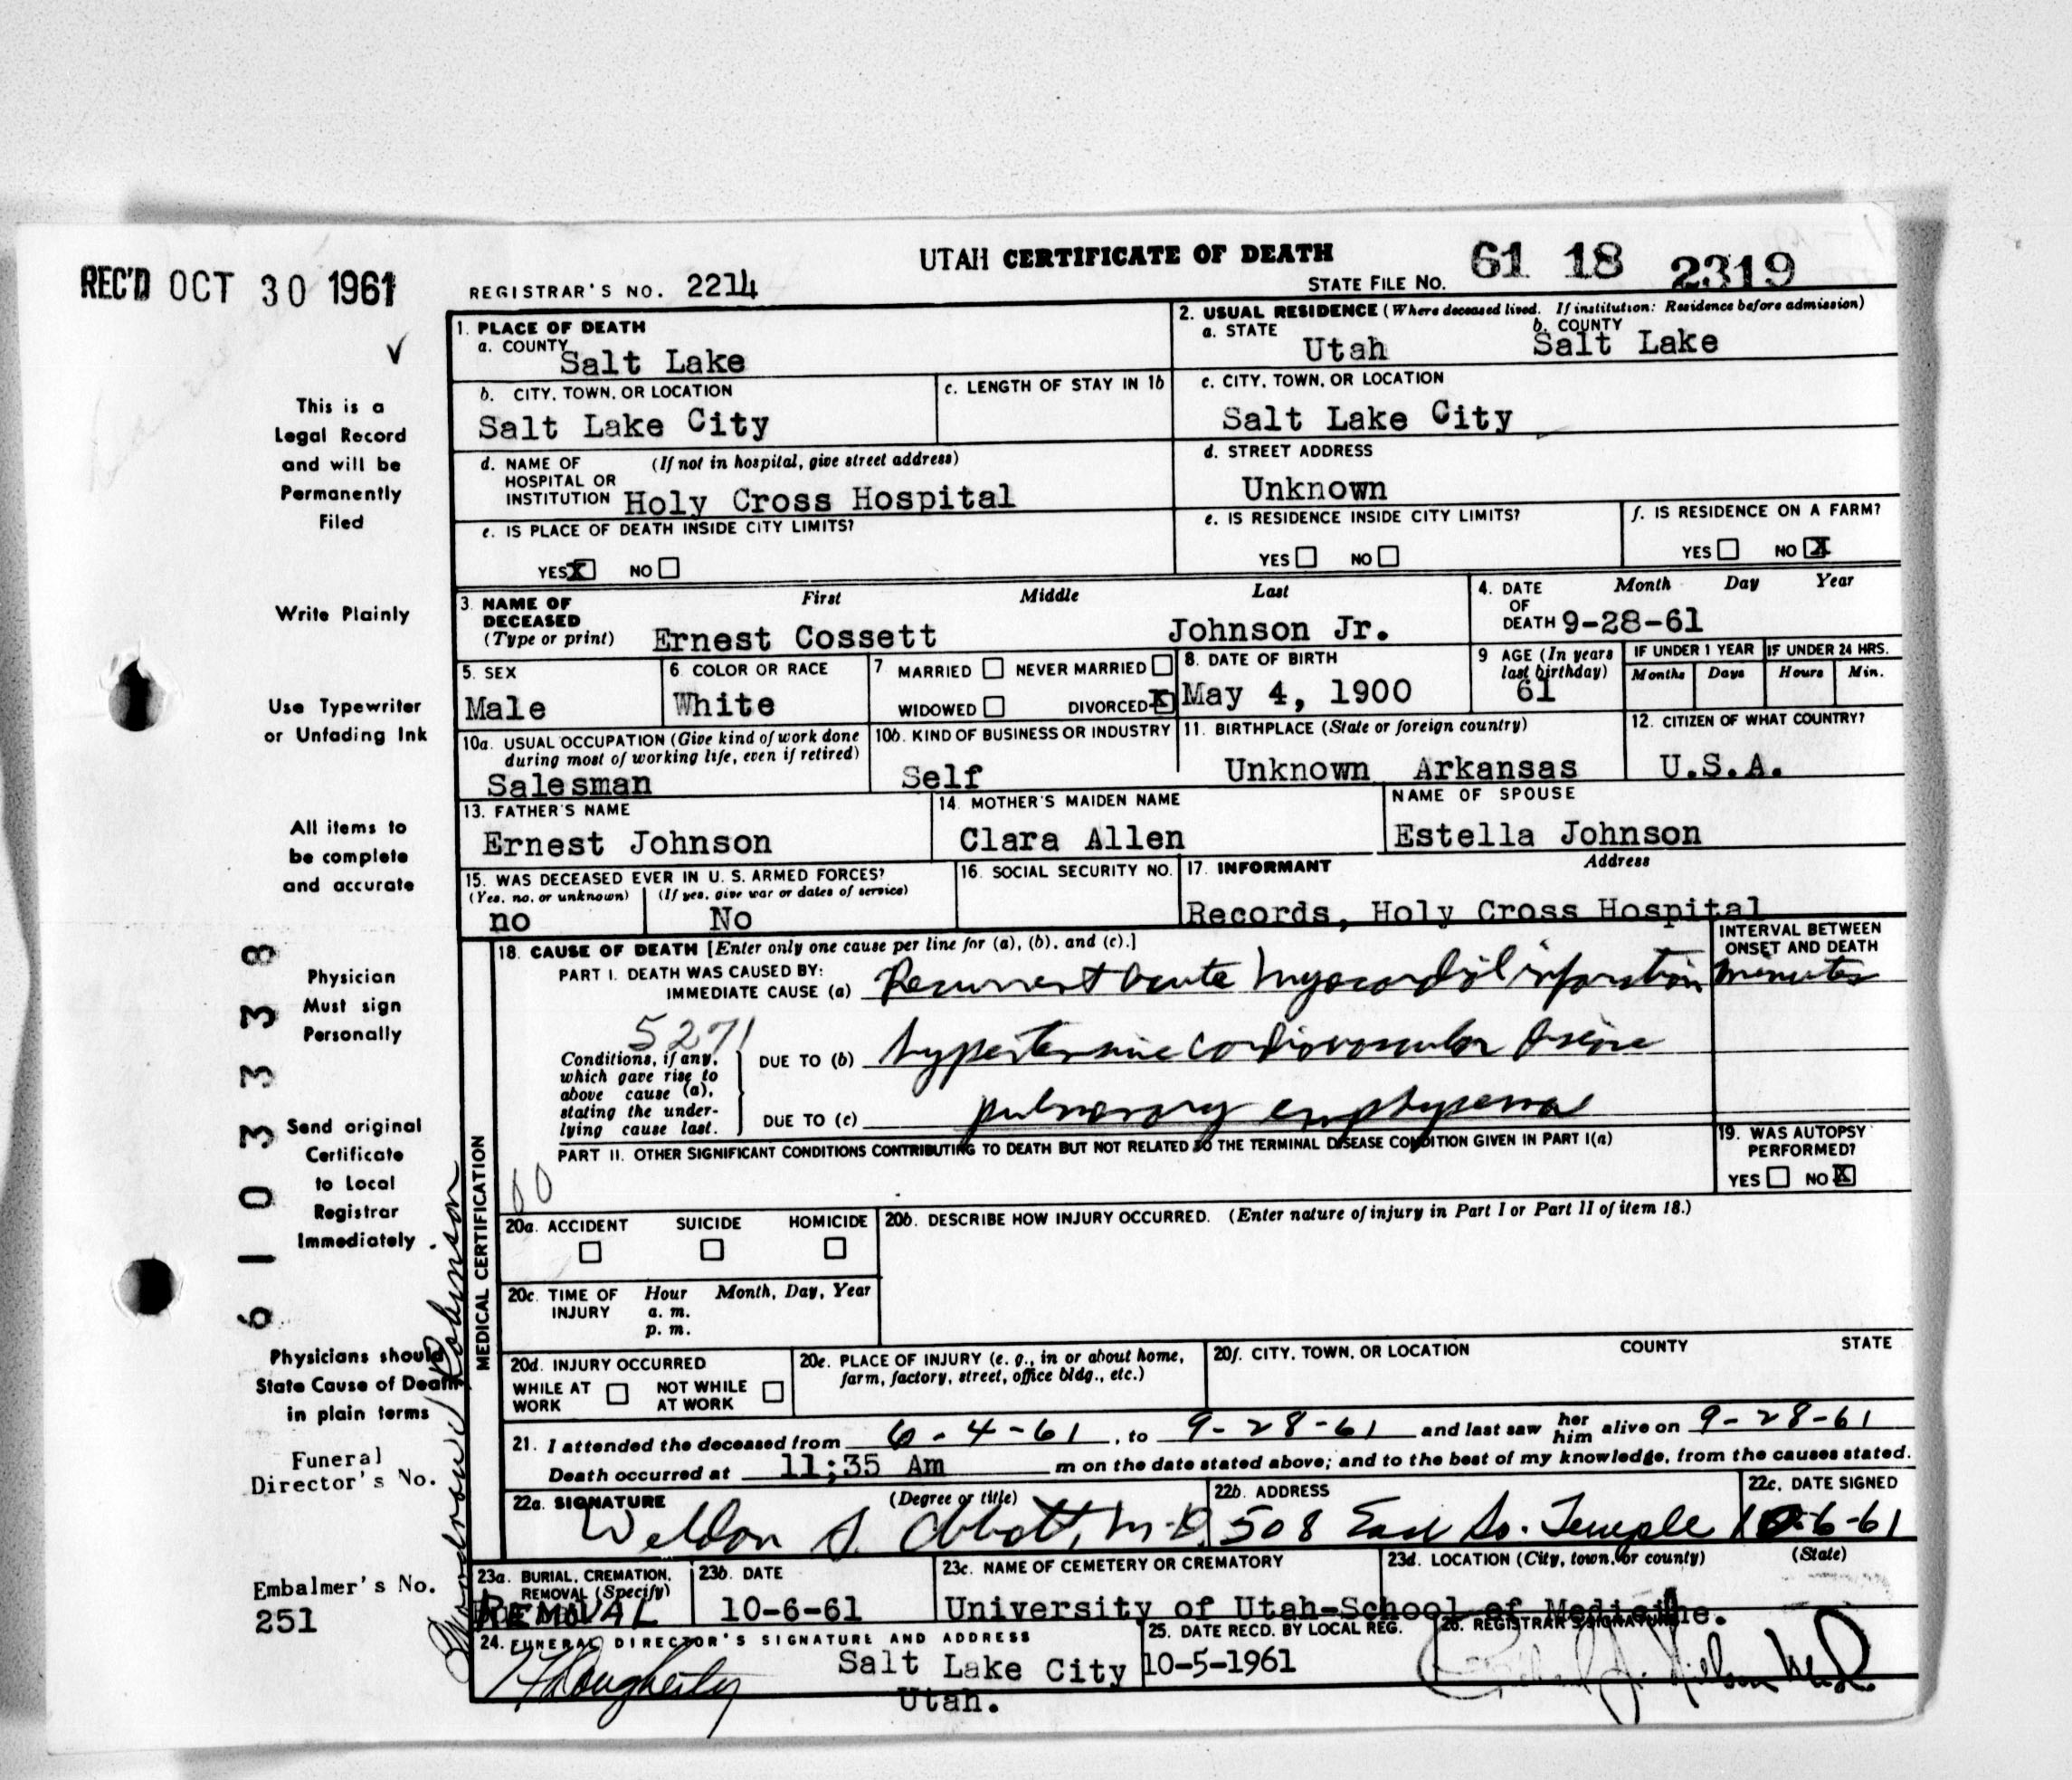 UTAH CERTIFICATE OF DEATH
REC'D OCT 30 1961
REGISTRAR'S NO. 2214
STATE FILE NO. 61 18 2319
This is a
Legal Record
and will be
Permanently
Filed
Write Plainly
Use Typewriter
or Unfading Ink
All items to
be complete
and accurate
Physician
Must sign
Personally
Send original
Certificate
to Local
Registrar
Immediately
Physicians should
State Cause of Death
in plain terms
Funeral
Director's No.
Embalmer's No.
251
6 1 0 3 3 3 8
Woodrow Robinson
1. PLACE OF DEATH
a. COUNTY
Salt Lake
b. CITY, TOWN, OR LOCATION
Salt Lake City
c. LENGTH OF STAY IN 1b
d. NAME OF HOSPITAL OR INSTITUTION (If not in hospital, give street address)
Holy Cross Hospital
e. IS PLACE OF DEATH INSIDE CITY LIMITS?
YES X NO
2. USUAL RESIDENCE (Where deceased lived. If institution: Residence before admission)
a. STATE b. COUNTY
Utah Salt Lake
c. CITY, TOWN, OR LOCATION
Salt Lake City
d. STREET ADDRESS
Unknown
e. IS RESIDENCE INSIDE CITY LIMITS?
YES NO
f. IS RESIDENCE ON A FARM?
YES NO X
3. NAME OF DECEASED (Type or print)
First Middle Last
Ernest Cossett Johnson Jr.
4. DATE OF DEATH Month Day Year
9-28-61
5. SEX
Male
6. COLOR OR RACE
White
7 MARRIED NEVER MARRIED
WIDOWED DIVORCED X
8. DATE OF BIRTH
May 4, 1900
9 AGE (In years last birthday)
61
IF UNDER 1 YEAR
Months Days
IF UNDER 24 HRS.
Hours Min.
10a. USUAL OCCUPATION (Give kind of work done
during most of working life, even if retired)
Salesman
10b. KIND OF BUSINESS OR INDUSTRY
Self
11. BIRTHPLACE (State or foreign country)
Unknown Arkansas
12. CITIZEN OF WHAT COUNTRY?
U.S.A.
13. FATHER'S NAME
Ernest Johnson
14. MOTHER'S MAIDEN NAME
Clara Allen
NAME OF SPOUSE
Estella Johnson
15. WAS DECEASED EVER IN U. S. ARMED FORCES?
(Yes, no, or unknown) (If yes, give war or dates of service)
no No
16. SOCIAL SECURITY NO.
17. INFORMANT Address
Records, Holy Cross Hospital
MEDICAL CERTIFICATION
18. CAUSE OF DEATH [Enter only one cause per line for (a), (b), and (c).]
INTERVAL BETWEEN
ONSET AND DEATH
PART I. DEATH WAS CAUSED BY:
IMMEDIATE CAUSE (a) Recurrent Acute Myocardial infarction minutes
5271
Conditions, if any,
which gave rise to
above cause (a),
stating the under-
lying cause last.
DUE TO (b) hypertensive cardiovascular disease
DUE TO (c) pulmonary emphysema
PART II. OTHER SIGNIFICANT CONDITIONS CONTRIBUTING TO DEATH BUT NOT RELATED TO THE TERMINAL DISEASE CONDITION GIVEN IN PART I(a)
19. WAS AUTOPSY
PERFORMED?
YES NO X
20a. ACCIDENT SUICIDE HOMICIDE
20b. DESCRIBE HOW INJURY OCCURRED. (Enter nature of injury in Part I or Part II of item 18.)
20c. TIME OF INJURY Hour Month, Day, Year
a. m.
p. m.
20d. INJURY OCCURRED
WHILE AT WORK NOT WHILE AT WORK
20e. PLACE OF INJURY (e. g., in or about home,
farm, factory, street, office bldg., etc.)
20f. CITY, TOWN, OR LOCATION COUNTY STATE
21. I attended the deceased from 6-4-61, to 9-28-61 and last saw her him alive on 9-28-61
Death occurred at 11;35 Am m on the date stated above; and to the best of my knowledge, from the causes stated.
22a. SIGNATURE (Degree or title)
Weldon S. Abbott, M.D.
22b. ADDRESS
508 East So. Temple
22c. DATE SIGNED
10-6-61
23a. BURIAL, CREMATION,
REMOVAL (Specify)
REMOVAL
23b. DATE
10-6-61
23c. NAME OF CEMETERY OR CREMATORY
23d. LOCATION (City, town, or county) (State)
University of Utah-School of Medicine.
24. FUNERAL DIRECTOR'S SIGNATURE AND ADDRESS
Salt Lake City
Utah.
25. DATE RECD. BY LOCAL REG.
10-5-1961
26. REGISTRAR'S SIGNATURE